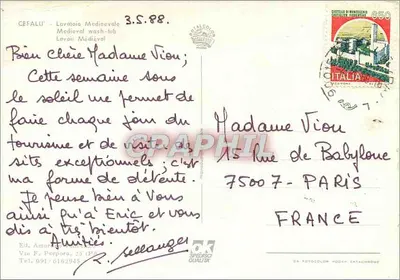 CEFALU' - Lavatoio Medioevale
Medieval wash-tub
Lavoir Médiéval
3.5.88.
650
ITALIA
Bien chère Madame Vion,
Cette semaine sous
le soleil me permet de
faire chaque jour du
tourisme et de visiter des
sites exceptionnels ; c'est
ma forme de détente.
Je pense bien à Vous
ainsi qu'à Eric et vous
dis à très bientôt.
Amitiés.
Madame Vion
15 Rue de Babylone
75007 - PARIS
FRANCE
DELCAMPE
GRAPHIL
OK